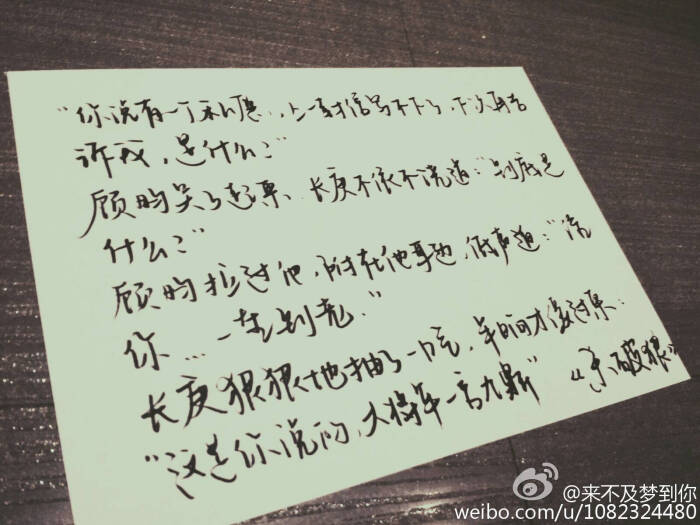 “你说有一个私愿，上一封信写不下了，下次再告
诉我，是什么？”
顾昀笑了起来、长庚不依不饶道：“到底是
什么？”
顾昀拉过他，附在他耳边，低声道：“给
你…一生到老。”
长庚狠狠地抽了一口气，半晌才缓过来：
“这是你说的，大将军一言九鼎” 《杀破狼》
@来不及梦到你
weibo.com/u/1082324480